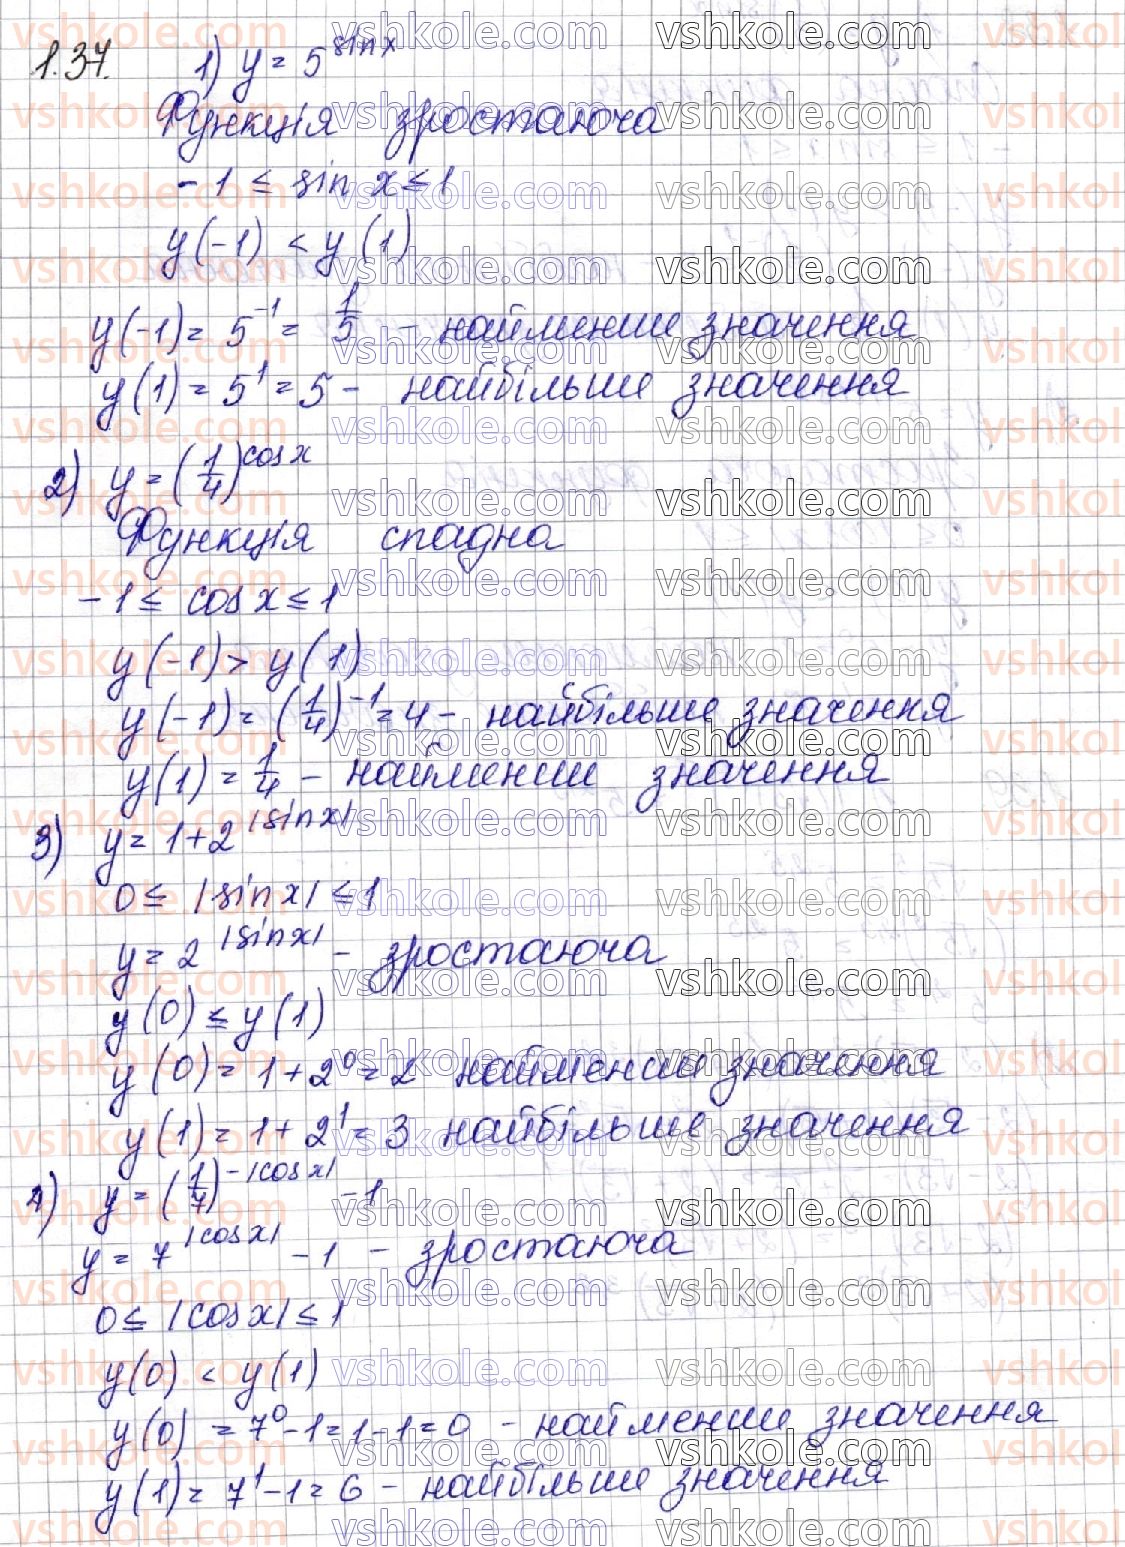 1.37. 1) y = 5^{sin x}
Функція зростаюча
-1 ≤ sin x ≤ 1
y(-1) < y(1)
y(-1) = 5^{-1} = 1/5 - найменше значення
y(1) = 5^1 = 5 - найбільше значення
2) y = (1/4)^{cos x}
Функція спадна
-1 ≤ cos x ≤ 1
y(-1) > y(1)
y(-1) = (1/4)^{-1} = 4 - найбільше значення
y(1) = 1/4 - найменше значення
3) y = 1 + 2^{|sin x|}
0 ≤ |sin x| ≤ 1
y = 2^{|sin x|} - зростаюча
y(0) ≤ y(1)
y(0) = 1 + 2^0 = 2 найменше значення
y(1) = 1 + 2^1 = 3 найбільше значення
4) y = (1/7)^{-|cos x|} - 1
y = 7^{|cos x|} - 1 - зростаюча
0 ≤ |cos x| ≤ 1
y(0) < y(1)
y(0) = 7^0 - 1 = 1 - 1 = 0 - найменше значення
y(1) = 7^1 - 1 = 6 - найбільше значення
vshkole.com